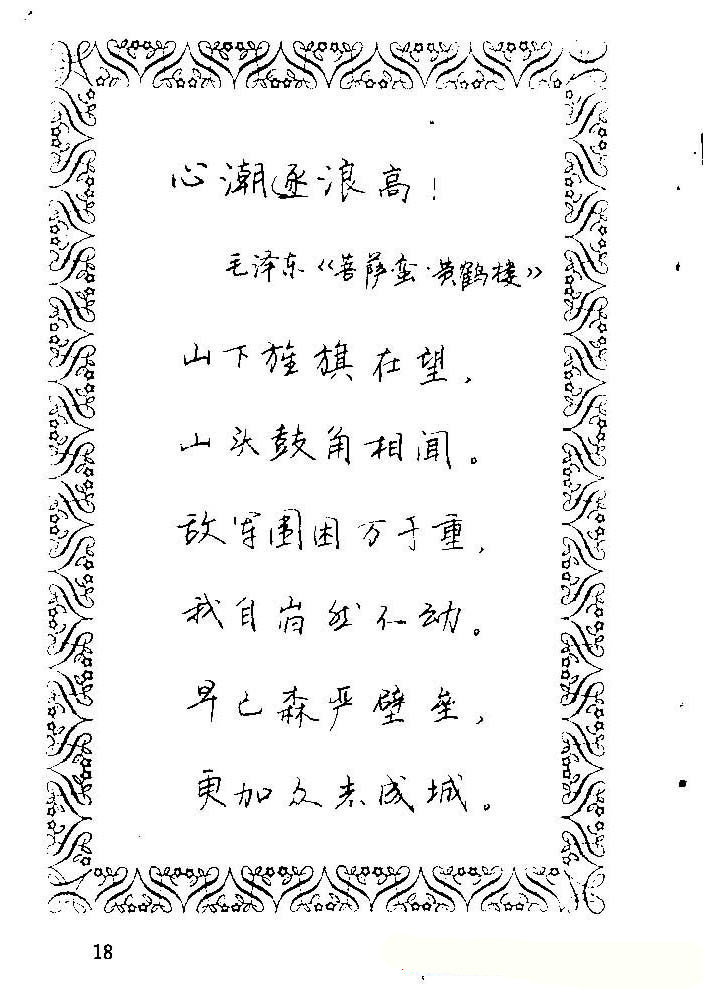 心潮逐浪高！
毛泽东《菩萨蛮·黄鹤楼》
山下旌旗在望，
山头鼓角相闻。
敌军围困万千重，
我自岿然不动。
早已森严壁垒，
更加众志成城。
18